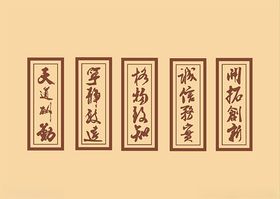 天道酬勤
宁静致远
格物致知
诚信务实
开拓创新